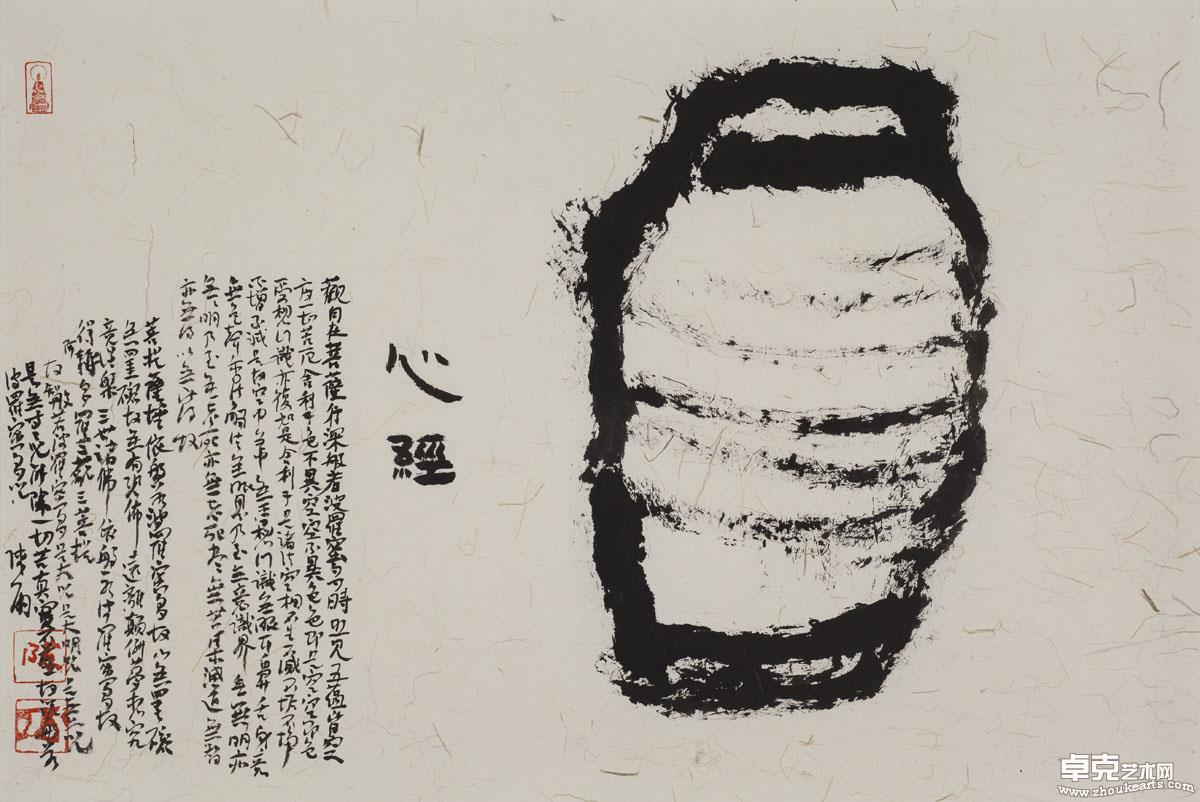 心經
觀自在菩薩行深般若波羅蜜多時照見五蘊皆空
度一切苦厄舍利子色不異空空不異色色即是空空即是色
受想行識亦復如是舍利子是諸法空相不生不滅不垢不淨
不增不減是故空中無色無受想行識無眼耳鼻舌身意
無色聲香味觸法無眼界乃至無意識界無無明亦
無無明盡乃至無老死亦無老死盡無苦集滅道無智
亦無得以無所得故
菩提薩埵依般若波羅蜜多故心無罣礙
無罣礙故無有恐怖遠離顛倒夢想究
竟涅槃三世諸佛依般若波羅蜜多故
得阿耨多羅三藐三菩提
故知般若波羅蜜多是大神咒是大明咒是無上咒
是無等等咒能除一切苦真實不虛故說般若
波羅蜜多咒
卓克艺术网
www.zhoukearts.com